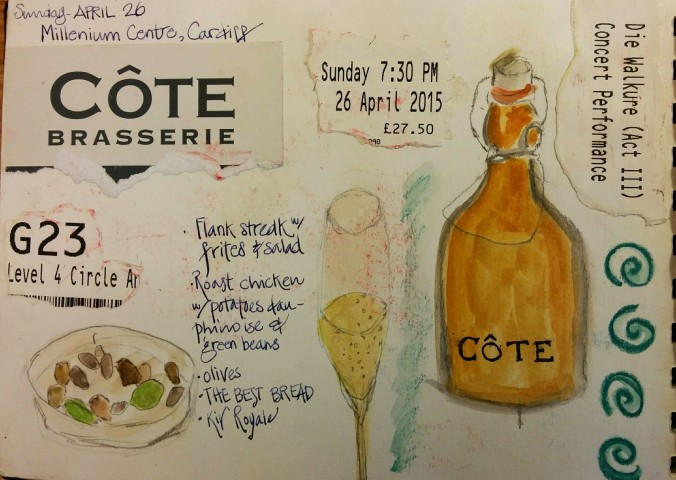 Sunday - APRIL 26
Millenium Centre, Cardiff
CÔTE
BRASSERIE
Sunday 7:30 PM
26 April 2015
£27.50
Die Walküre (Act III)
Concert Performance
G23
Level 4 Circle Ar
· Flank streak w/
frites & salad
· Roast chicken
w/ potatoes dau-
phinoise &
green beans
· olives
· THE BEST BREAD
· Kir Royale
CÔTE